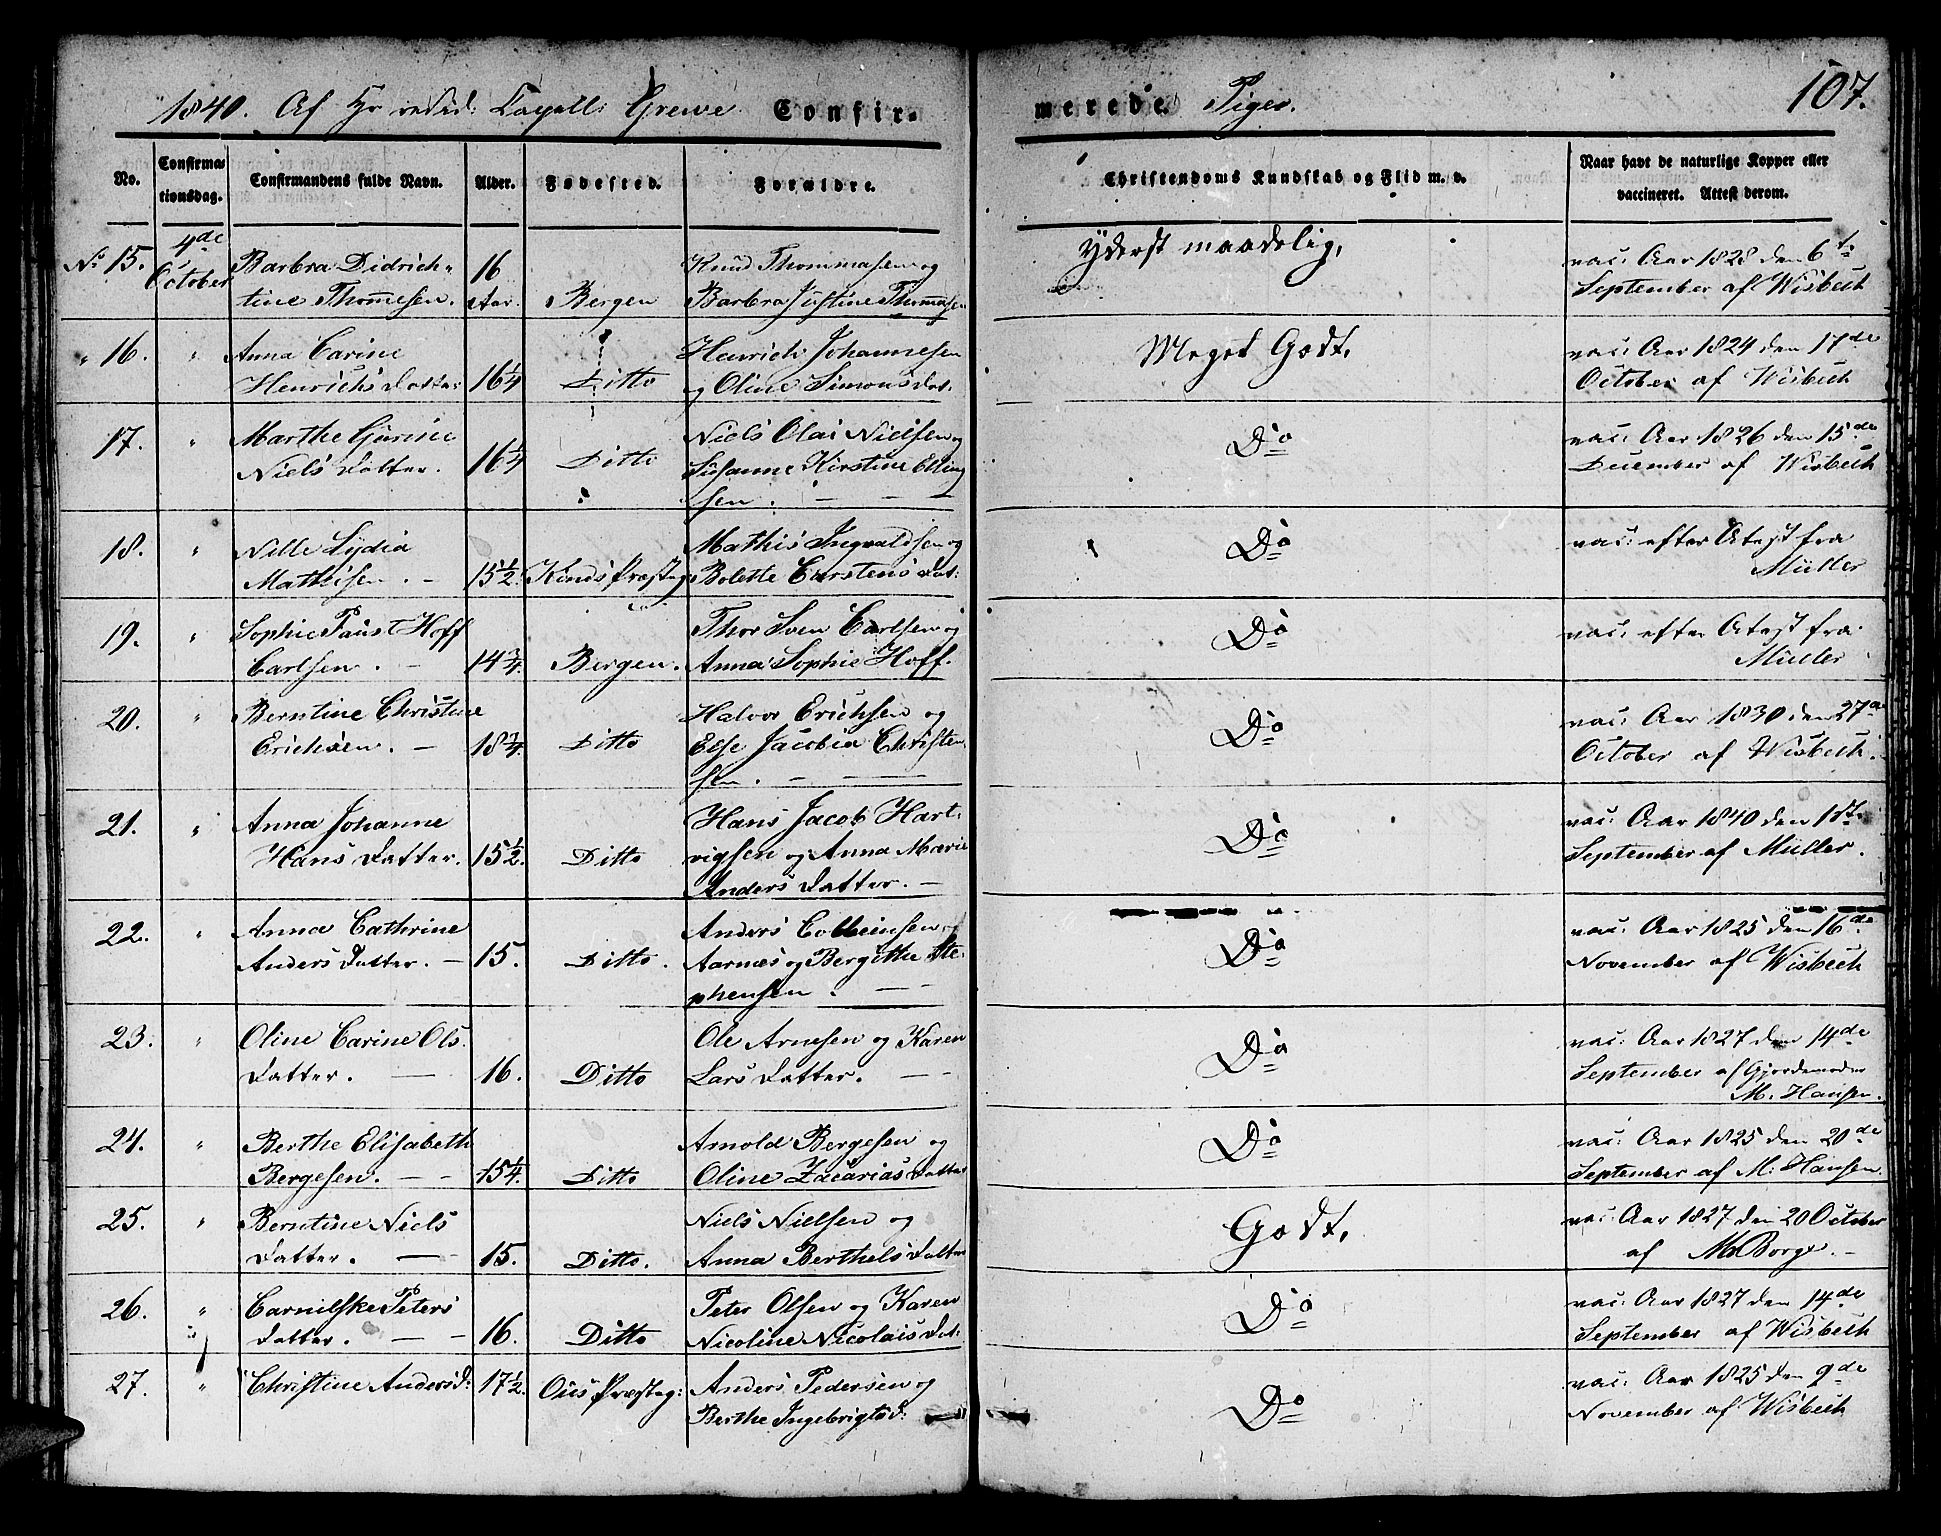 1840. Af Hr resid: Capell: Grewe Confir-
merede Piger. 107.
No. Confirma- tionsdag. Confirmandens fulde Navn. Alder. Fødested. Forældre. Christendoms Kundskab og Flid m. v. Naar havt de naturlige Kopper eller vaccineret. Attest derom.
No 15. 4de October Barbra Didrich- 16 Knud Thommasen og Yderst maadelig, vac: Aar 1828 den 6te
tine Thommesen. Aar. Bergen Barbra Justine Thommesen September af Wisbech
" 16. " Anna Carine Henrich Johannesen Meget Godt, vac: Aar 1824 den 17de
Henrichs Datter 16 1/4 Ditto og Oline Simons Dat: October af Wisbech
17. " Marthe Gurine Niels Olai Nielsen og Do vac: Aar 1826 den 15de
Niels Datter. 16 1/4 Ditto Susanne Kirstine Elling December af Wisbech
sen. — —
18. " Nille Lydia Mathis Ingvaldsen og Do vac: efter Atest fra
Mathisen. — 15 1/2. Kinds Præsteg: Bolette Carstens Dat: Müller
19. " Sophie Faust Hoff Thor Sven Carlsen og Do vac: efter Atest fra
Carlsen. — 14 3/4. Bergen. Anna Sophie Hoff. Müller
20. " Berntine Christine Halvor Erichsen og Do vac: Aar 1830 den 27de
Erichsen. — 18 3/4. Ditto Else Jacobia Christen October af Wisbech.
sen. — —
21. " Anna Johanne Hans Jacob Hart- Do vac: Aar 1840 den 1ste
Hans Datter. 15 1/2. Ditto vigsen og Anna Marie September af Müller.
Anders Datter. —
22. " Anna Cathrine Anders Colbeinsen Do vac: Aar 1825 den 16de
Anders Datter. — 15. Ditto. Aarnæs og Bergithe Ste- November af Wisbech
phensen. — —
23. " Oline Carine Ols. Ole Arnesen og Karen Do vac: Aar 1827 den 14de
Datter. — 16. Ditto Lars Datter. — — September af Gjordemoder
M. Hansen.
24. " Berthe Elisabeth Arnold Bergesen og Do vac: Aar 1825 den 20de
Bergesen. — — 15 1/4. Ditto Oline Zacarias Datter September af M: Hansen.
25. " Berntine Niels Niels Nielsen og Godt, vac: Aar 1827 den 20 October
Datter. — 15. Ditto. Anna Berthels Datter af M Borge. —
26. " Carnilske Peters Peter Olsen og Karen Do vac: Aar 1827 den 14de
Datter. — — 16. Ditto Nicoline Nicolais Dat: September af Wisbech
27. " Christine Andersd: 17 1/2. Ous Præsteg: Anders Pedersen og Do vac: Aar 1825 den 9de
Berthe Ingebrigtsd: November af Wisbech